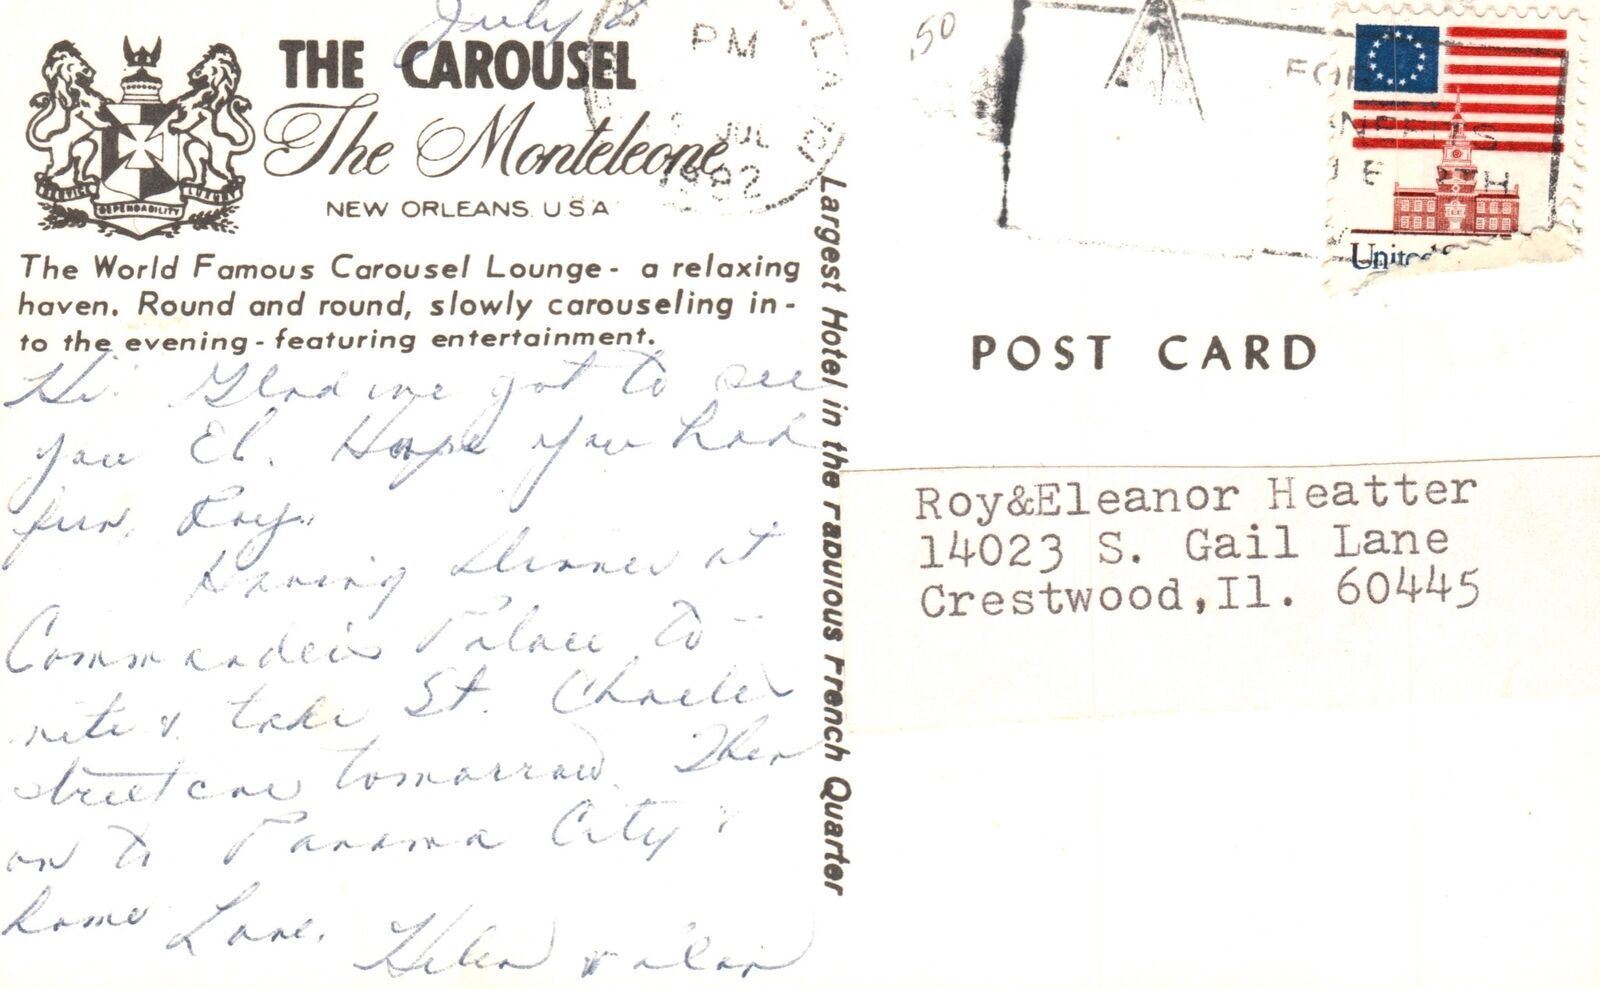 July 2
THE CAROUSEL
The Monteleone
NEW ORLEANS U.S.A
SERVICE DEPENDABILITY LUXURY
The World Famous Carousel Lounge - a relaxing
haven. Round and round, slowly carouseling in -
to the evening - featuring entertainment.
Hi! Glad we got to see
you El. Hope you had
fun, Roy.
Having dinner at
Commander's Palace to-
nite & take St. Charles
streetcar tomorrow. Then
on to Panama City &
home Love,
Helen &
Largest Hotel in the Fabulous French Quarter
PM
JUL
1982
LA
.50
FOR
United S
POST CARD
Roy&Eleanor Heatter
14023 S. Gail Lane
Crestwood,Il. 60445